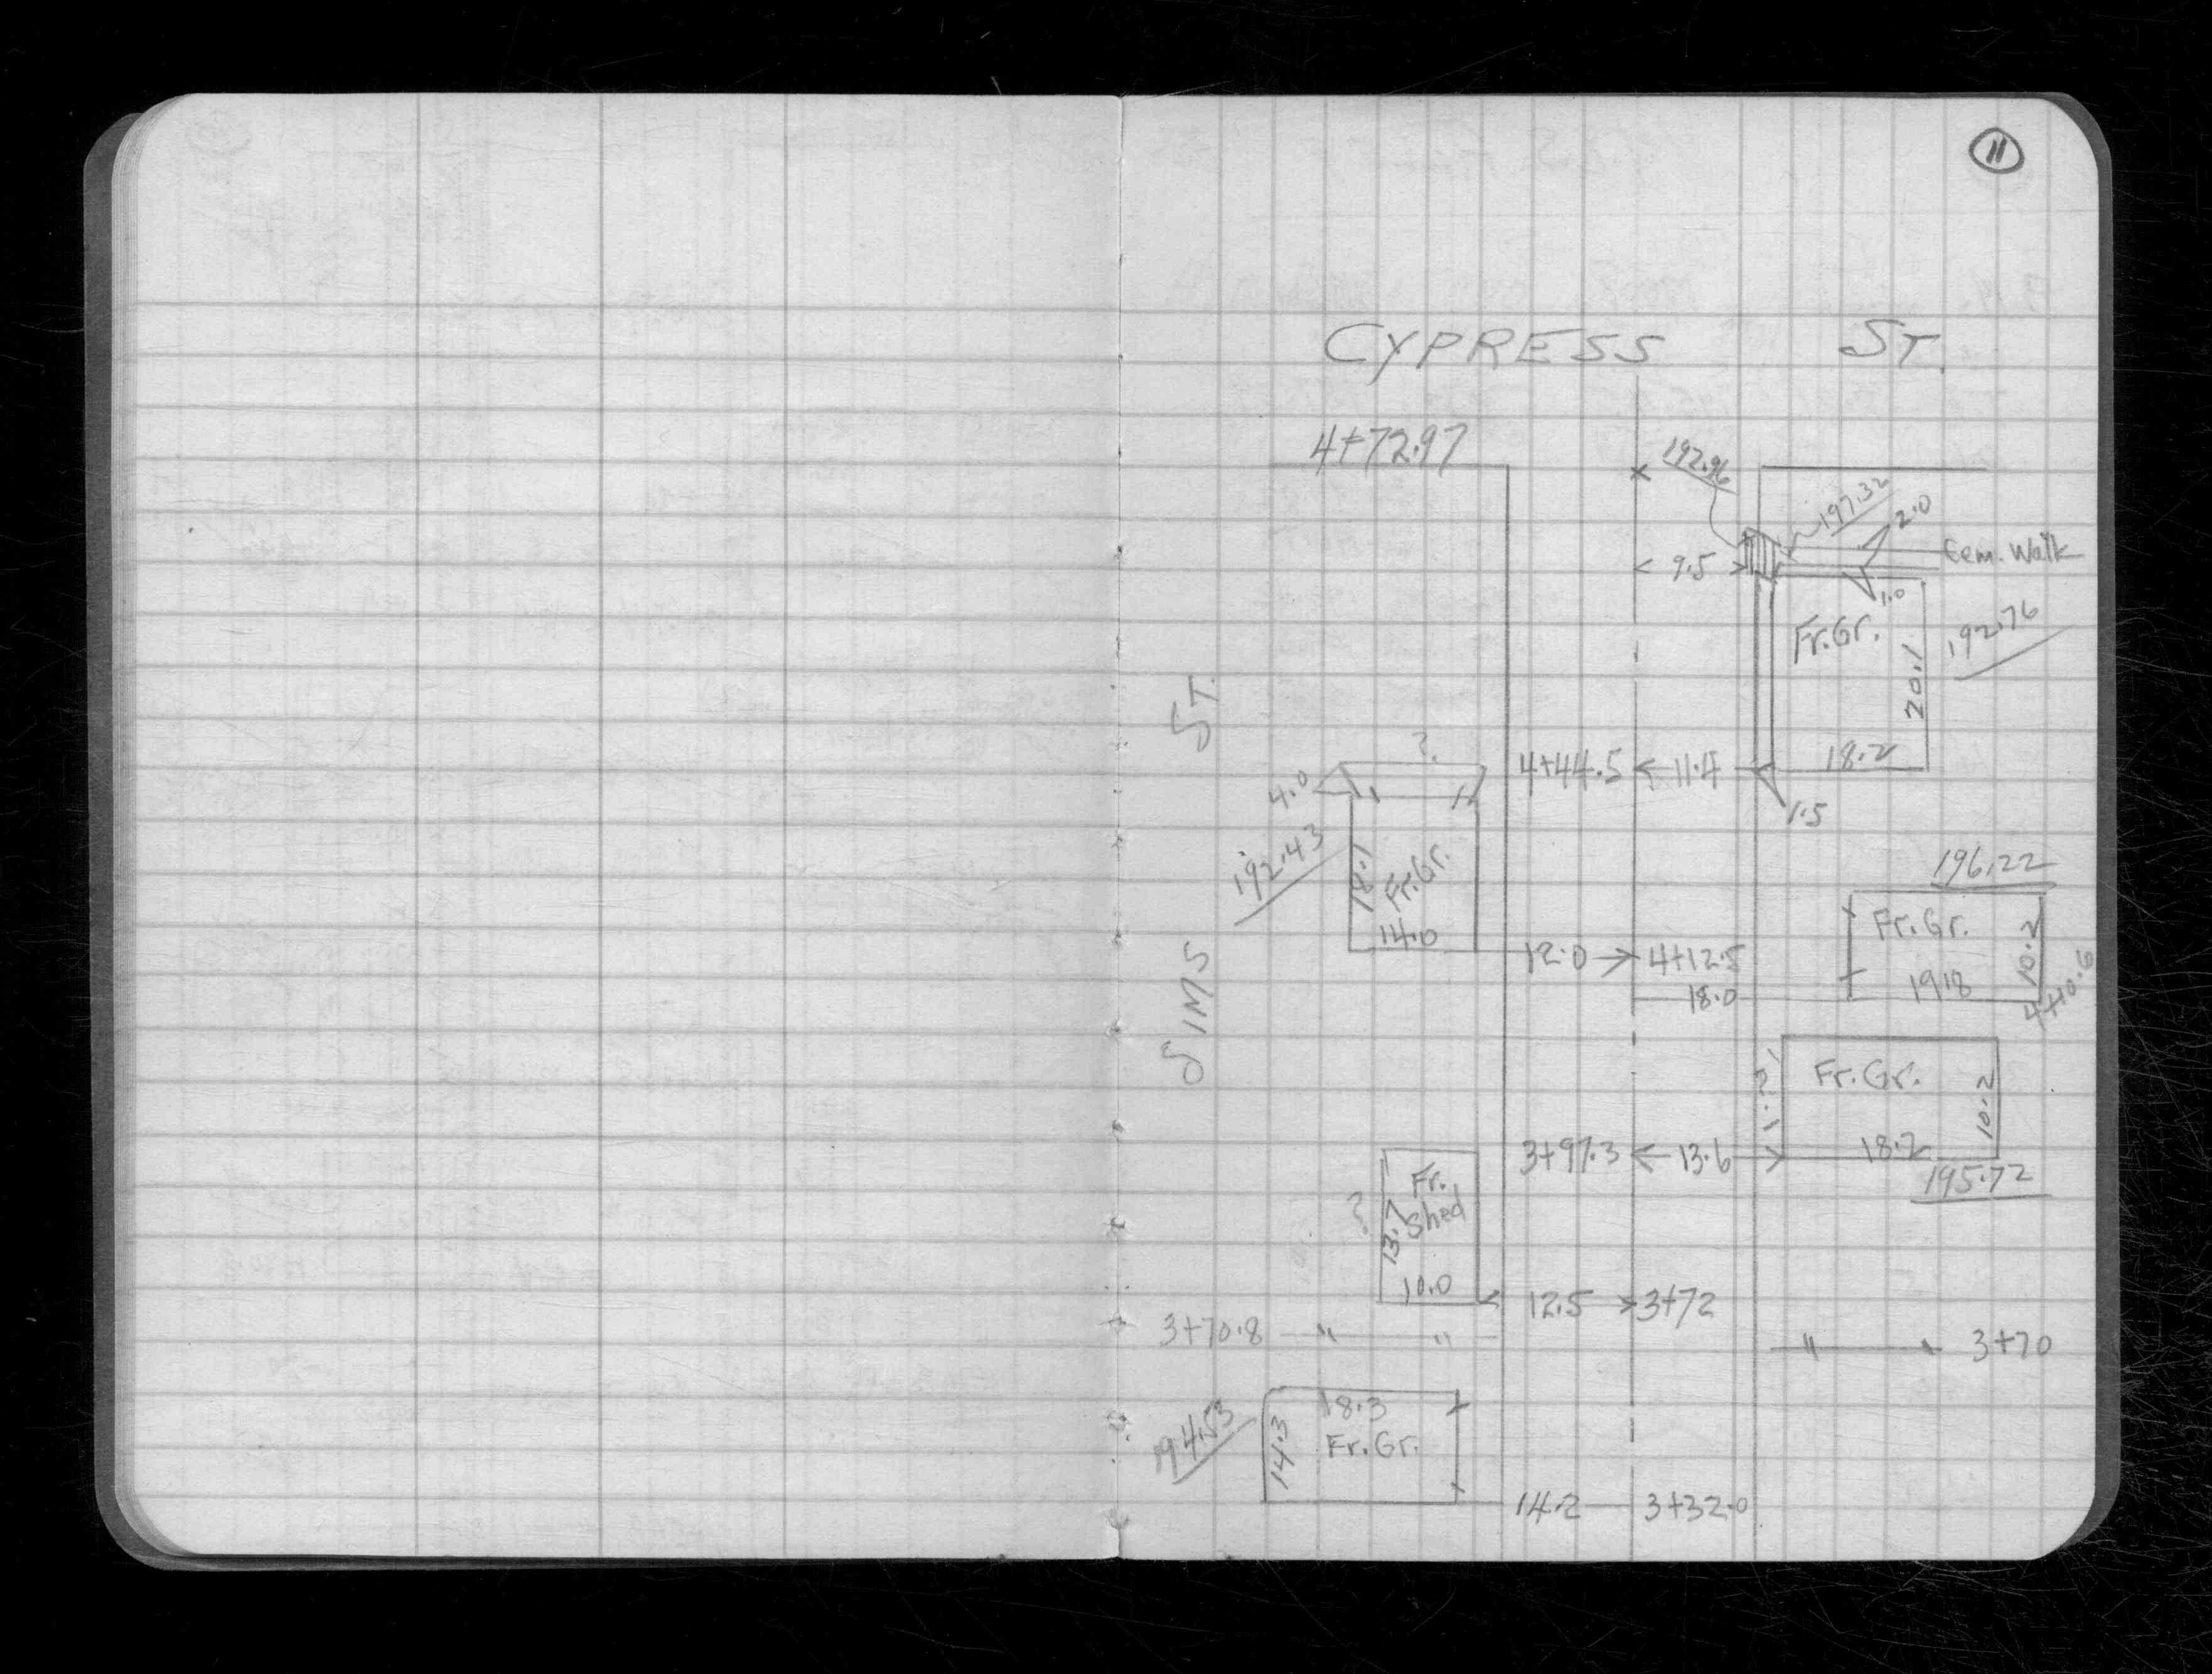 11
CYPRESS ST.
4+72.97
192.96
197.32
2.0
9.5
Cem. Walk
1.0
Fr.Gr.
192.76
20.1
ST.
?
4+44.5
11.4
18.2
4.0
1.5
192.43
18.1
Fr.Gr.
196.22
14.0
Fr.Gr.
10.2
12.0
4+12.5
SIMS
18.0
4+10.6
Fr.Gr.
10.2
3+97.3
13.6
18.2
195.72
Fr.
Shed
?
13.7
10.0
12.5
3+72
3+70.8
3+70
194.53
18.3
14.3
Fr.Gr.
14.2
3+32.0